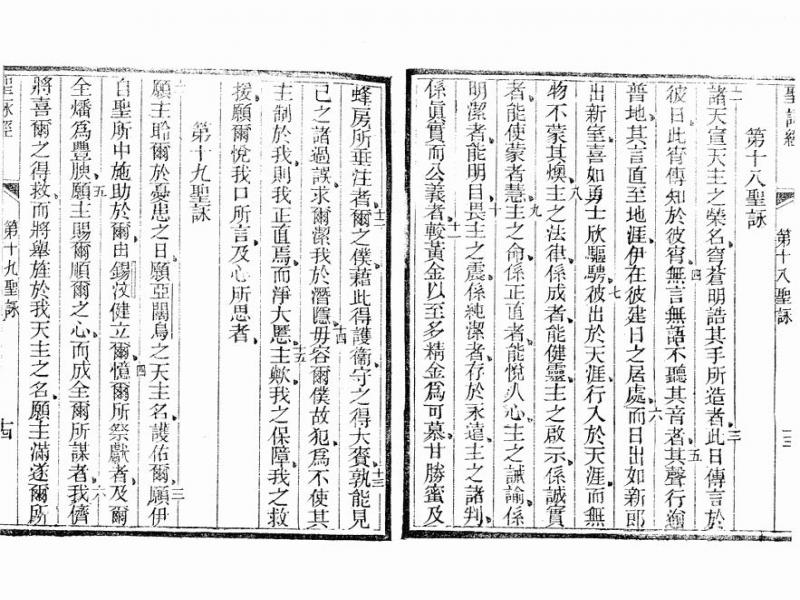 聖詠經
第十八聖詠
十三
第十八聖詠
二
諸天宣天主之榮名穹蒼明誥其手所造者此日傳言於
三
彼日此宵傳知於彼宵無言無語不聽其音者其聲行
四
五
普地其言直至地涯伊在彼建日之居處而日出如新郎
六
出新室喜如勇士欣驅騁彼出於天涯行入於天涯而無
七
物不蒙其燠主之法律係成者能健靈主之啟示係誠實
八
者能使蒙者慧主之命係正直者能悅人心主之誡諭係
九
明潔者能明目畏主之震係純潔者存於永遠主之諸判
十
係眞實而公義者較黃金以至多精金為可慕甘勝蜜及
十一
蜂房所垂注者爾之僕藉此得護衛守之得大賚孰能見
十二
十三
己之諸過誤求爾潔我於潛隱毋容爾僕故犯為不使其
十四
主制於我則我正直焉而淨大慝主歟我之保障我之救
十五
援願爾悅我口所言及心所思者
第十九聖詠
願主聆爾於憂患之日願亞闊烏之天主名護佑爾願伊
三
自聖所中施助於爾由錫汶健立爾憶爾所祭獻者及爾
四
全燔為豐腴願主賜爾順爾之心而成全爾所謀者我儕
五
六
將喜爾之得救而將舉旌於我天主之名願主滿遂爾所
聖詠經
第十九聖詠
十四